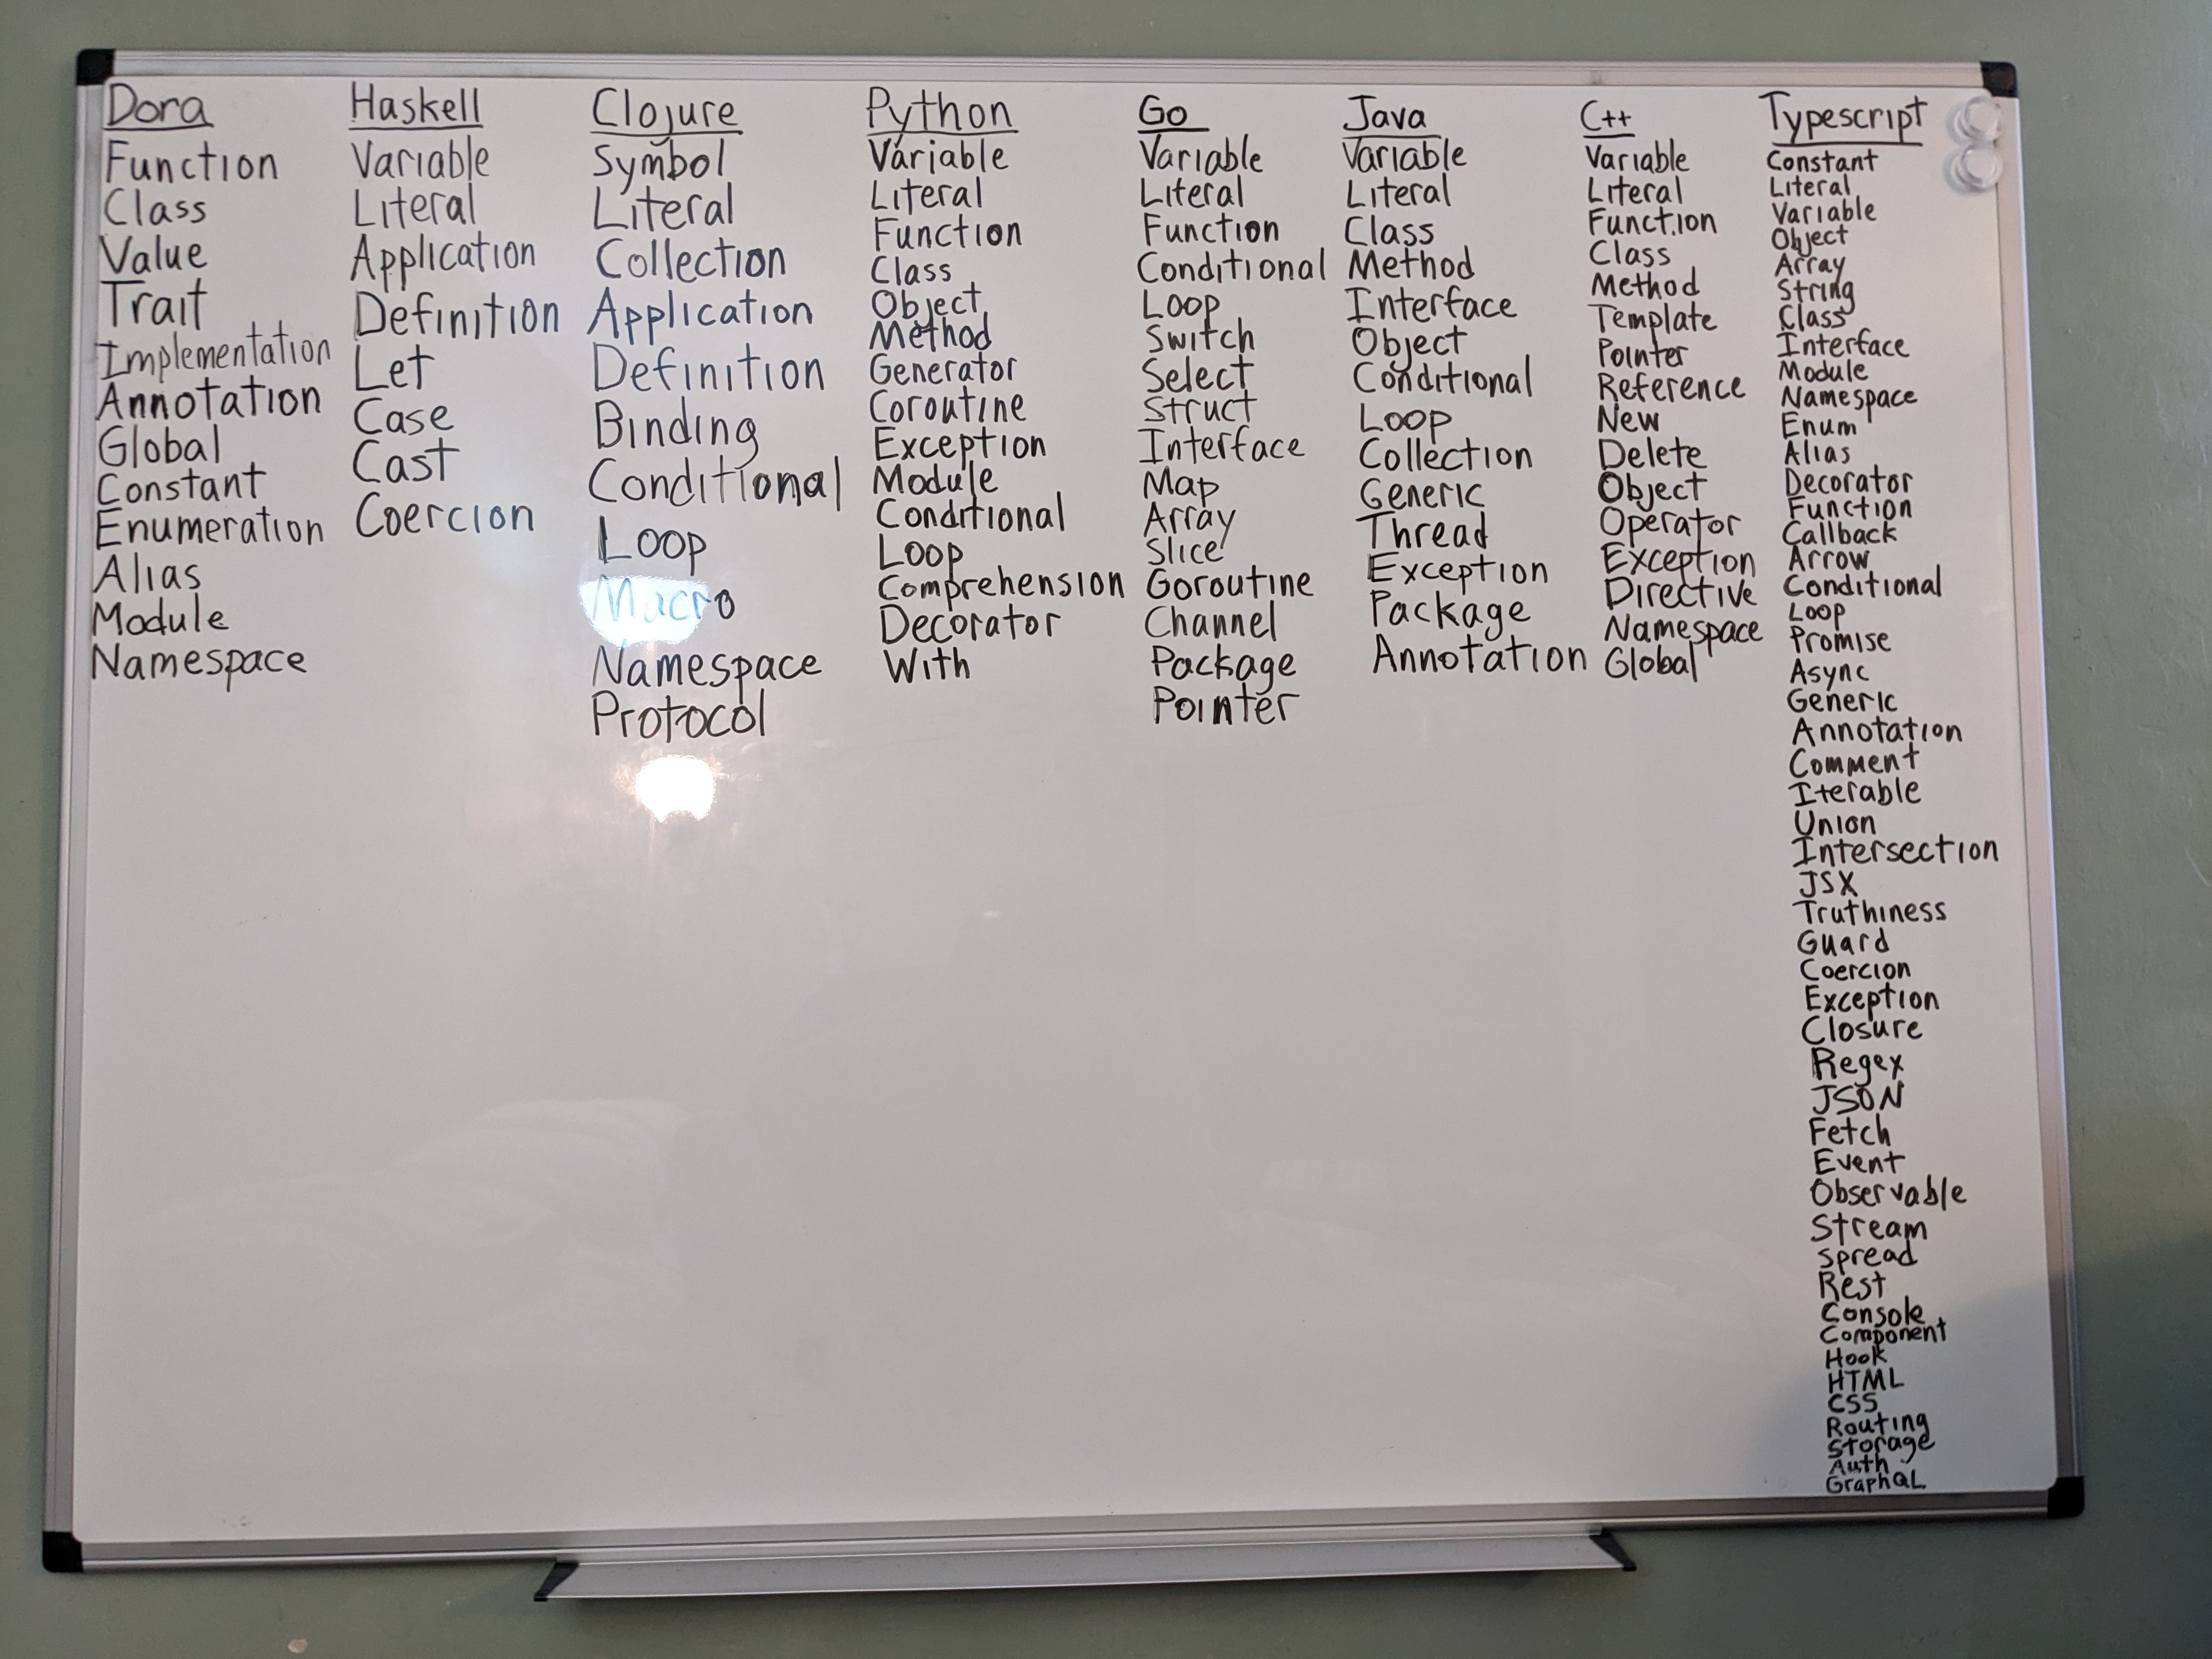 Dora
Function
Class
Value
Trait
Implementation
Annotation
Global
Constant
Enumeration
Alias
Module
Namespace
Haskell
Variable
Literal
Application
Definition
Let
Case
Cast
Coercion
Clojure
Symbol
Literal
Collection
Application
Definition
Binding
Conditional
Loop
Macro
Namespace
Protocol
Python
Variable
Literal
Function
Class
Object
Method
Generator
Coroutine
Exception
Module
Conditional
Loop
Comprehension
Decorator
With
Go
Variable
Literal
Function
Conditional
Loop
Switch
Select
Struct
Interface
Map
Array
Slice
Goroutine
Channel
Package
Pointer
Java
Variable
Literal
Class
Method
Interface
Object
Conditional
Loop
Collection
Generic
Thread
Exception
Package
Annotation
C++
Variable
Literal
Function
Class
Method
Template
Pointer
Reference
New
Delete
Object
Operator
Exception
Directive
Namespace
Global
Typescript
Constant
Literal
Variable
Object
Array
String
Class
Interface
Module
Namespace
Enum
Alias
Decorator
Function
Callback
Arrow
Conditional
Loop
Promise
Async
Generic
Annotation
Comment
Iterable
Union
Intersection
JSX
Truthiness
Guard
Coercion
Exception
Closure
Regex
JSON
Fetch
Event
Observable
Stream
Spread
Rest
Console
Component
Hook
HTML
CSS
Routing
Storage
Auth
GraphQL